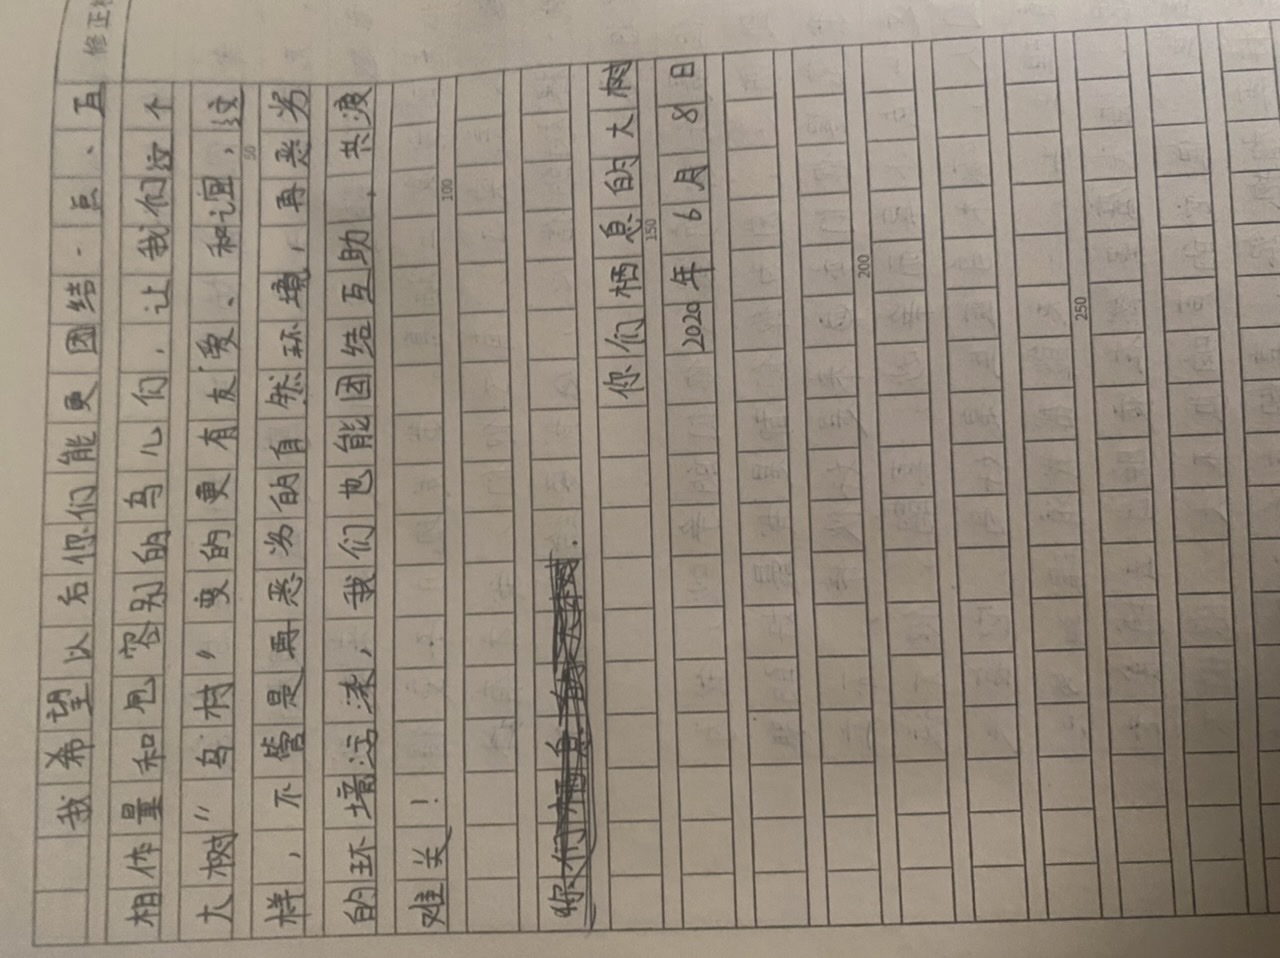 修正
我希望以后你们能更团结一点、互
相体量和包容别的鸟儿们，让我们这个
大树“鸟村”变的更有友爱、和谊，这
50
样，不管是再恶劣的自然环境，再恶劣
的环境污染，我们也能团结互助，共渡
难关！
100
你们栖息的大树
150
2020年6月8日
200
250